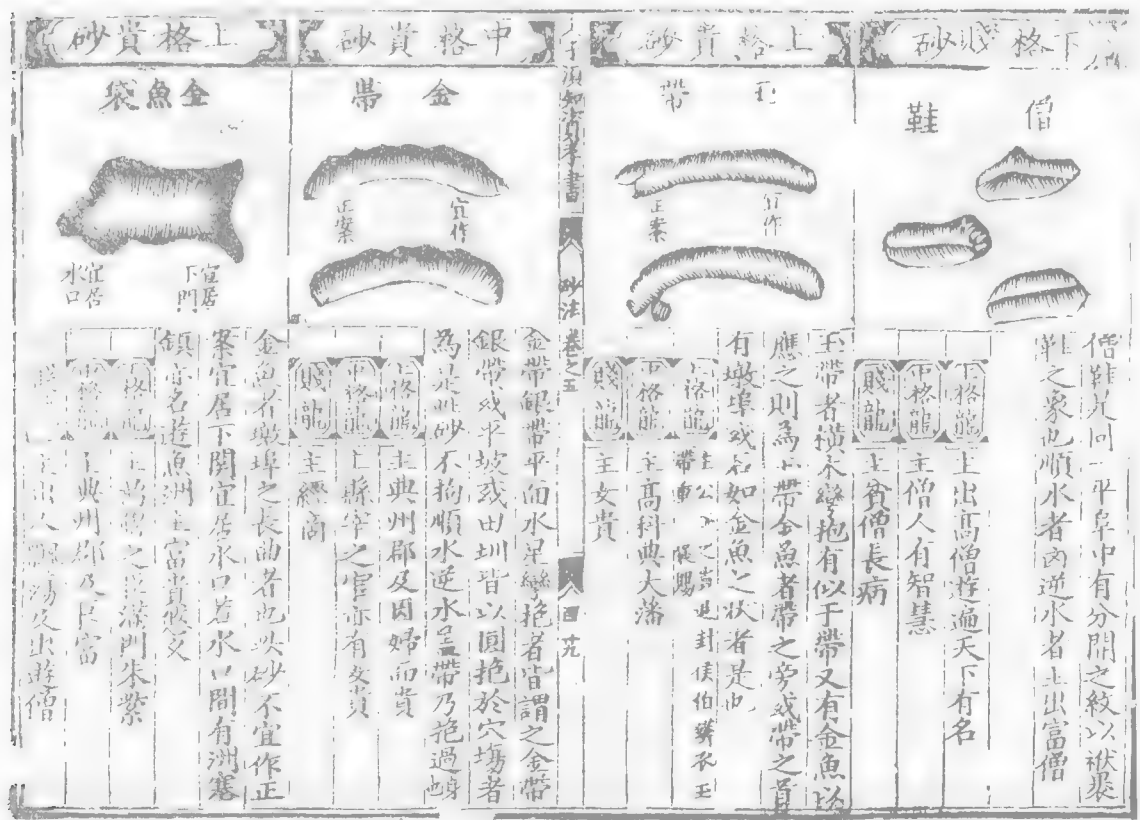 下格賤砂
僧鞋
僧鞋者一平阜中有分開之紋以袱裝
鞋之象也順水者凶逆水者主出富僧
上格龍 主出高僧遊遍天下有名
中格龍 主僧人有智慧
賤龍 主貧僧長病
上格貴砂
玉帶
宜作
正案
玉帶者橫木彎抱有似于帶又有金魚以
應之則為玉帶金魚者帶之旁或帶之首
有墩埠或石如金魚之狀者是也
上格龍 主公 封侯伯 衣玉
帶車
中格龍 主高科典大藩
賤龍 主女貴
人子須知資孝書
砂法 卷之五
四十九
中格貴砂
金帶
宜作
正案
金帶銀帶平面水星彎抱者皆謂之金帶
銀帶或平坡或田圳皆以圓抱於穴塲者
為是此砂不拘順水逆水蓋帶乃抱過身
上格龍 主典州郡及因婦而貴
中格龍 主縣宰之官亦有女貴
賤龍 主經商
上格貴砂
金魚袋
宜居下門
宜居水口
金魚者墩埠之長曲者也此砂不宜作正
案宜居下関宜居水口若水口間有洲塞
鎮亦名遊魚洲主富貴
上格龍 滿門朱紫
中格龍 主典州郡乃巨富
賤龍 主出人飄蕩及出遊僧